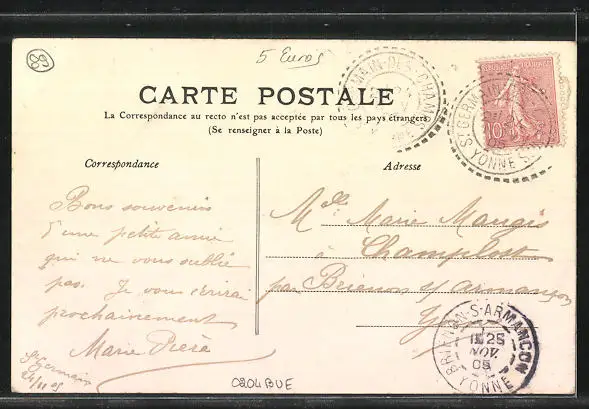 5 Euros
CARTE POSTALE
La Correspondance au recto n'est pas acceptée par tous les pays étrangers
(Se renseigner à la Poste)
Correspondance
Adresse
Bons souvenirs
d'une petite amie
qui ne vous oublie
pas. Je vous écrirai
prochainement
Marie
St Germain
24/11 05
Mlle Marie Maugis
à Champlost
par Brienon s/ armançon
Y
ST GERMAIN-DES-CHAMPS
REPUBLIQUE FRANÇAISE
10c
YONNE
BRIENON-S-ARMANÇON
25
NOV.
05
YONNE
0204 BUE